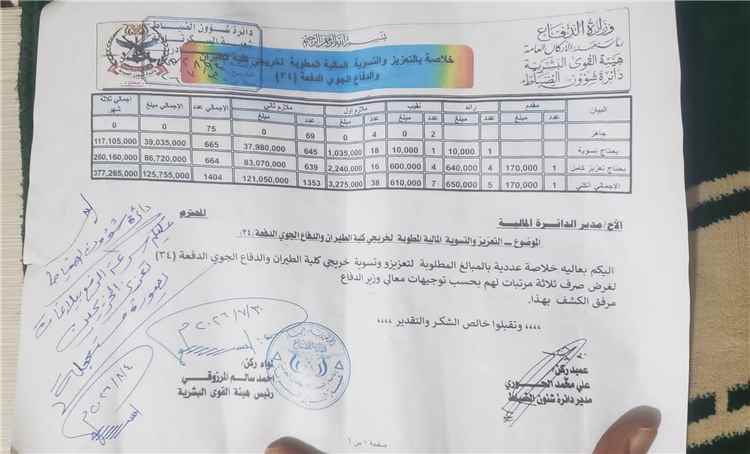 وزارة الدفاع
رئاسة هيئة الأركان العامة
هيئة القوى البشرية
دائرة شؤون الضباط
بسم الله الرحمن الرحيم
دائرة شؤون الضباط
خلاصة بالتعزيز والتسوية المالية المطلوبة لخريجي كلية الطيران
والدفاع الجوي الدفعة (٣٤)
البيان مقدم رائد نقيب ملازم أول ملازم ثاني اجمالي عدد الاجمالي مبلغ اجمالي ثلاثة شهور
عدد مبلغ عدد مبلغ عدد مبلغ عدد مبلغ عدد مبلغ
جاهز 2 0 4 0 69 0 75 0 0
يحتاج تسوية 1 10,000 1 10,000 18 1,035,000 645 37,980,000 665 39,035,000 117,105,000
يحتاج تعزيز كامل 1 170,000 4 640,000 4 600,000 16 2,240,000 639 83,070,000 664 86,720,000 260,160,000
الاجمالي الكلي 1 170,000 5 650,000 7 610,000 38 3,275,000 1353 121,050,000 1404 125,755,000 377,265,000
الأخ/ مدير الدائرة المالية المحترم
الموضوع ــ التعزيز والتسوية المالية المطلوبة لخريجي كلية الطيران والدفاع الجوي الدفعة (٣٤)
اليكم بعاليه خلاصة عددية بالمبالغ المطلوبة لتعزيزو وتسوية خريجي كلية الطيران والدفاع الجوي الدفعة (٣٤)
لغرض صرف ثلاثة مرتبات لهم بحسب توجيهات معالي وزير الدفاع
مرفق الكشف بهذا.
،،،، وتقبلوا خالص الشكر والتقدير ،،،،
عميد ركن/
علي محمد الحوري
مدير دائرة شئون الضباط
٢٠٢٦/٧/٣٠م
لواء ركن/
احمد سالم المرزوقي
رئيس هيئة القوى البشرية
دائرة شؤون الضباط
٢٠٢٦/٨/٤م
صفحة ١ من ١